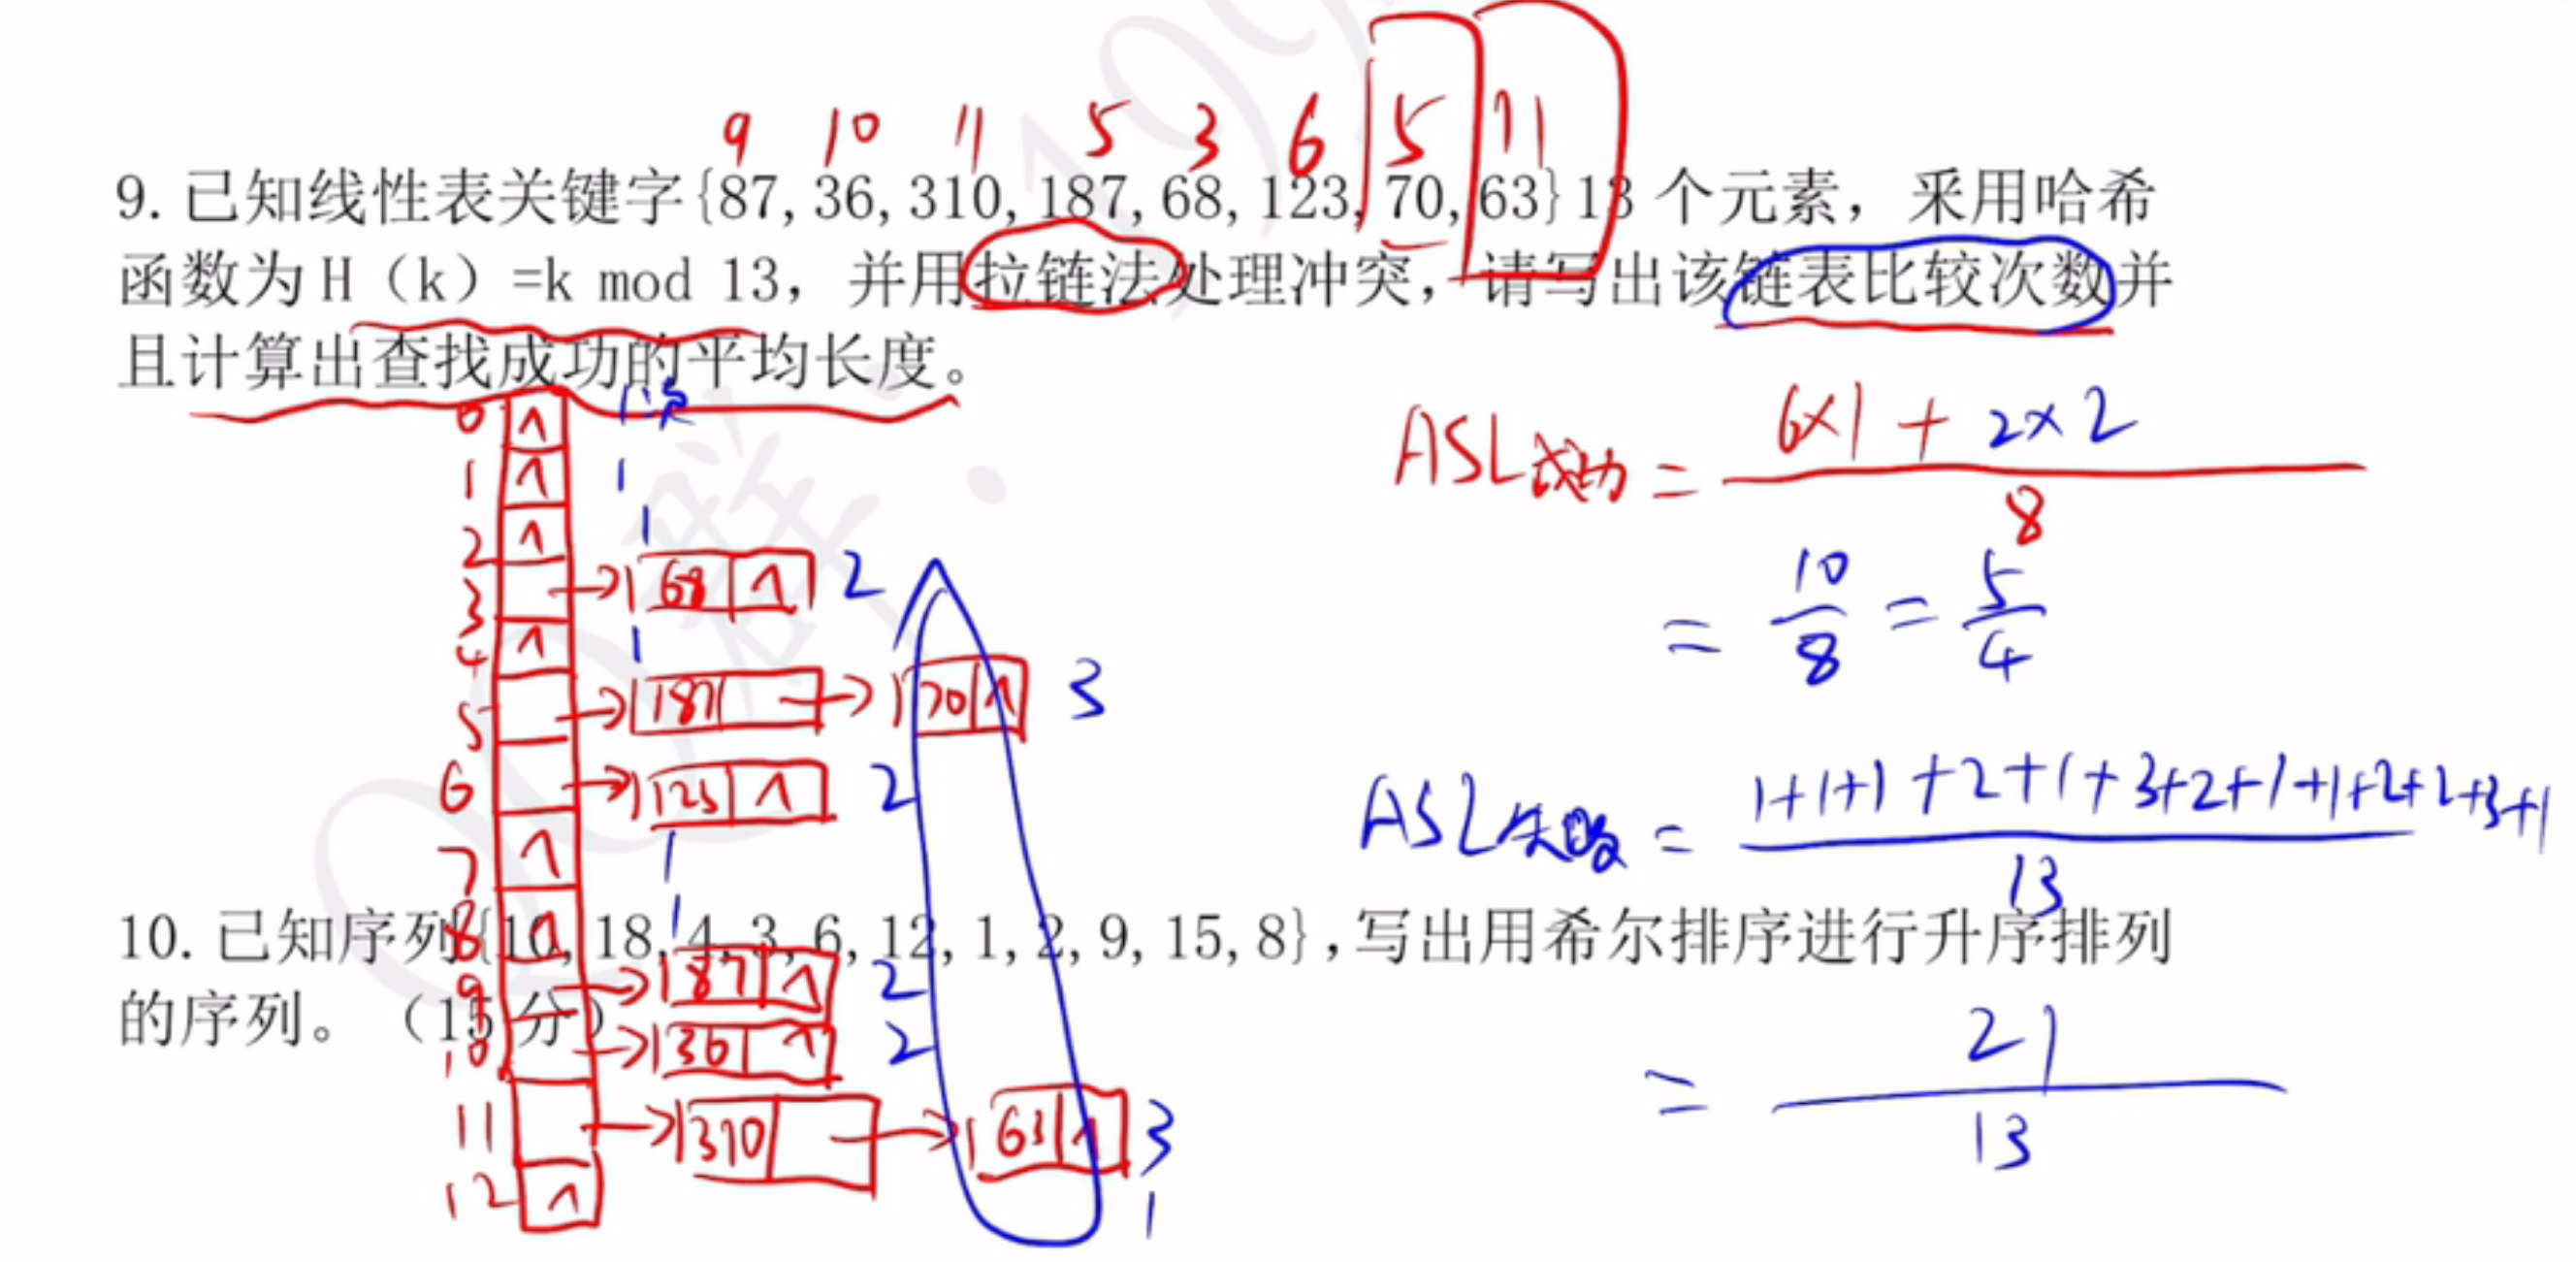 9 10 11 5 3 6 5 11
9. 已知线性表关键字{87, 36, 310, 187, 68, 123, 70, 63}13 个元素，采用哈希
函数为 H（k）=k mod 13，并用拉链法处理冲突，请写出该链表比较次数并
且计算出查找成功的平均长度。
0 ∧ 1次
1 ∧ 1
2 ∧ 1
3 → 68 ∧ 2
4 ∧ 1
5 → 187 → 70 ∧ 3
6 → 123 ∧ 2
7 ∧ 1
8 ∧ 1
9 → 87 ∧ 2
10 → 36 ∧ 2
11 → 310 → 63 ∧ 3
12 ∧ 1
ASL成功 = 6×1 + 2×2
8
= 10/8 = 5/4
ASL失败 = 1+1+1+2+1+3+2+1+1+2+2+3+1
13
= 21
13
10. 已知序列{10, 18, 4, 3, 6, 12, 1, 2, 9, 15, 8},写出用希尔排序进行升序排列
的序列。（15 分）